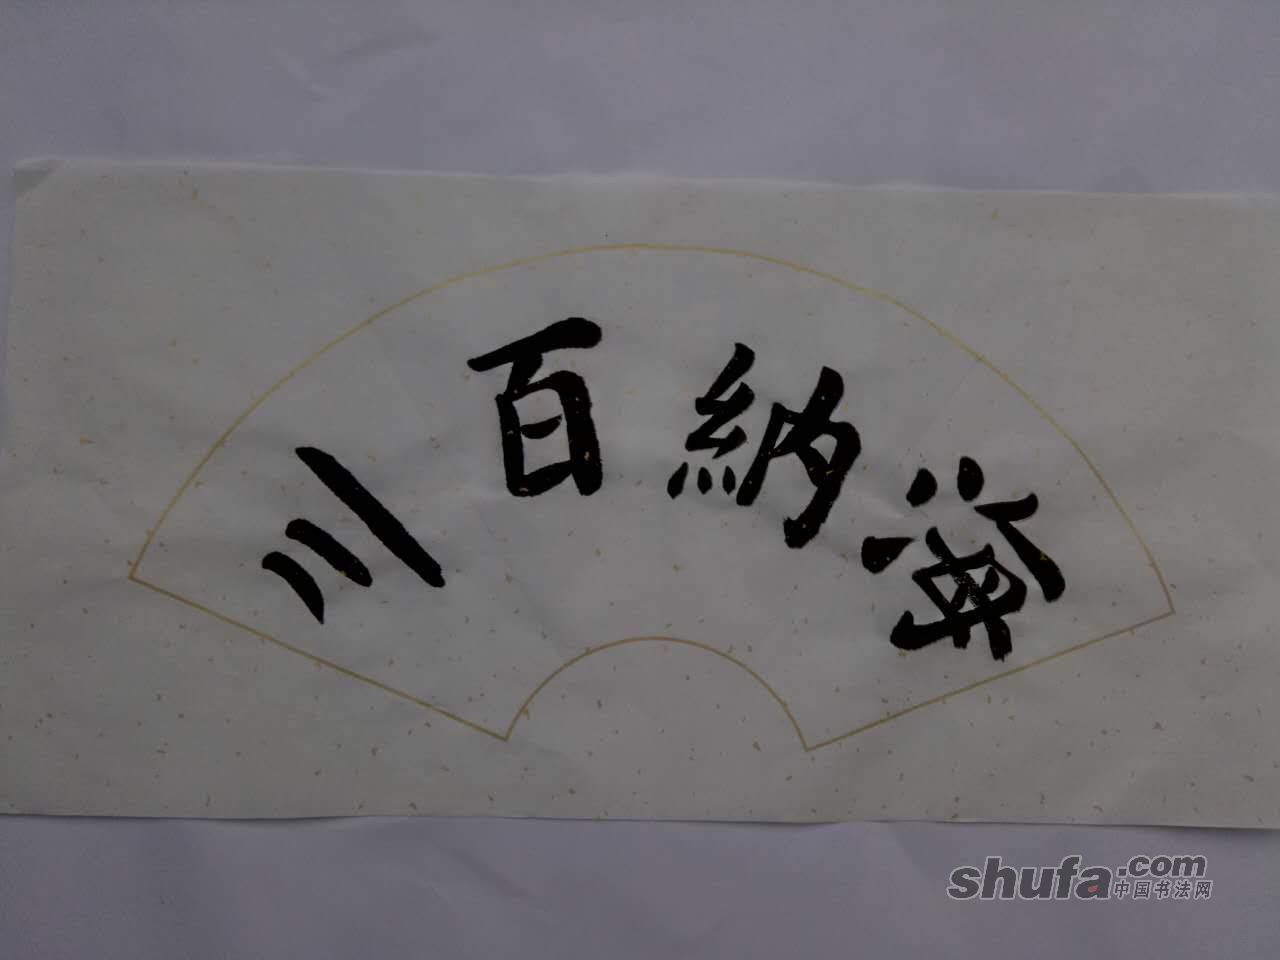 海納百川
shufa.com
中国书法网